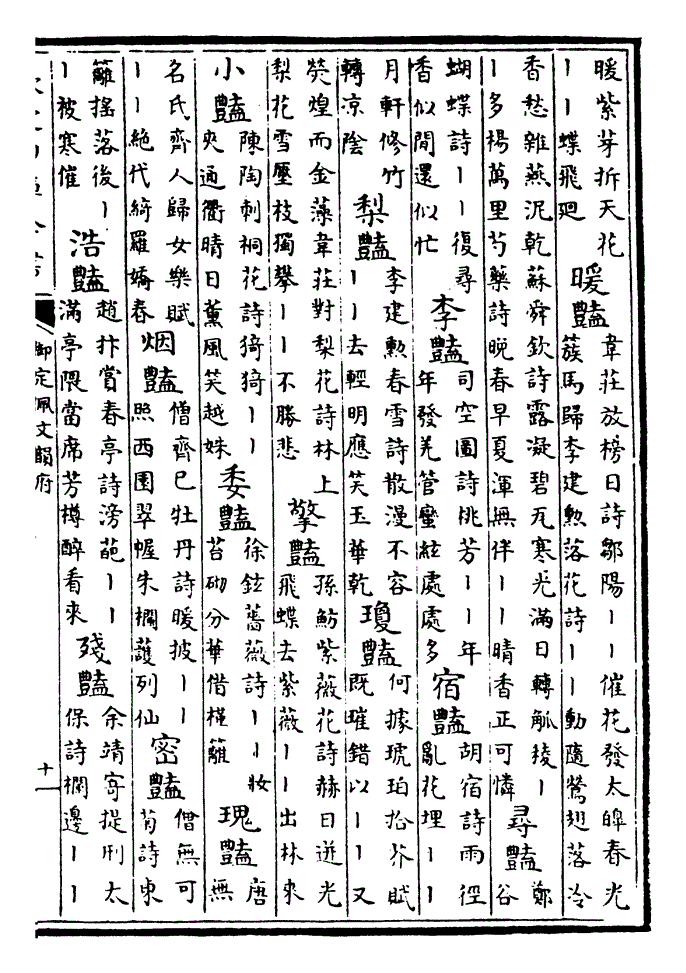 暖紫芽拆天花
丨丨蝶飛廻
暖豔
韋莊放榜日詩鄒陽丨丨催花發太皥春光
蔟馬歸李建勲落花詩丨丨動隨鶯翅落冷
香愁雜燕泥乾蘇舜欽詩露凝碧瓦寒光滿日轉觚稜丨
丨多楊萬里芍藥詩晚春早夏渾無伴丨丨晴香正可憐
尋豔
鄭
谷
蝴蝶詩丨丨復尋
香似閒還似忙
李豔
司空圖詩桃芳丨丨年
年發羌管蠻絃處處多
宿豔
胡宿詩雨徑
亂花埋丨丨
月軒修竹
轉凉陰
梨豔
李建勲春雪詩散漫不容
丨丨去輕明應笑玉華乾
瓊豔
何據琥珀拾芥賦
既璀錯以丨丨又
熒煌而金藻韋莊對梨花詩林上
梨花雪壓枝獨攀丨丨不勝悲
擎豔
孫魴紫薇花詩赫日迸光
飛蝶去紫薇丨丨出林來
小豔
陳陶刺桐花詩猗猗丨丨
夾通衢晴日薰風笑越姝
委豔
徐鉉薔薇詩丨丨妝
苔砌分華借槿籬
瑰豔
唐
無
名氏齊人歸女樂賦
丨丨絶代綺羅嬌春
烟豔
僧齊已牡丹詩暖披丨丨
照西園翠幄朱欄護列仙
密豔
僧無可
菊詩東
籬揺落後丨
丨被寒催
浩豔
趙抃賞春亭詩滂葩丨丨
滿亭隈當席芳樽醉看來
殘豔
余靖寄提刑太
保詩欄邊丨丨
御定佩文韻府
十